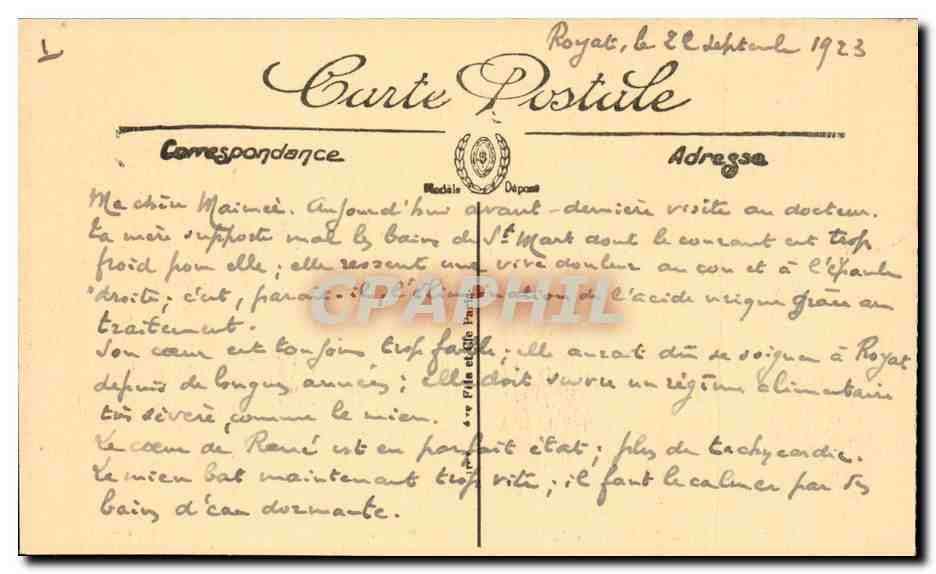 1
Royat, le 22 septembre 1923
Carte Postale
Correspondance
Adresse
Modèle Déposé
Ma chère Maimée. Aujourd'hui avant-dernière visite au docteur.
Ta mère supporte mal les bains de St Mart dont le courant est trop
froid pour elle ; elle ressent une vive douleur au cou et à l'épaule
droite ; c'est, paraît-il, l'élimination de l'acide urique grâce au
traitement.
Son cœur est toujours trop faible ; elle aurait dû se soigner à Royat
depuis de longues années ; elle doit suivre un régime alimentaire
très sévère, comme le mien.
Le cœur de René est en parfait état ; plus de tachycardie.
Le mien bat maintenant trop vite ; il faut le calmer par des
bains d'eau dormante.
Fils et Cie Paris
CPAPHIL